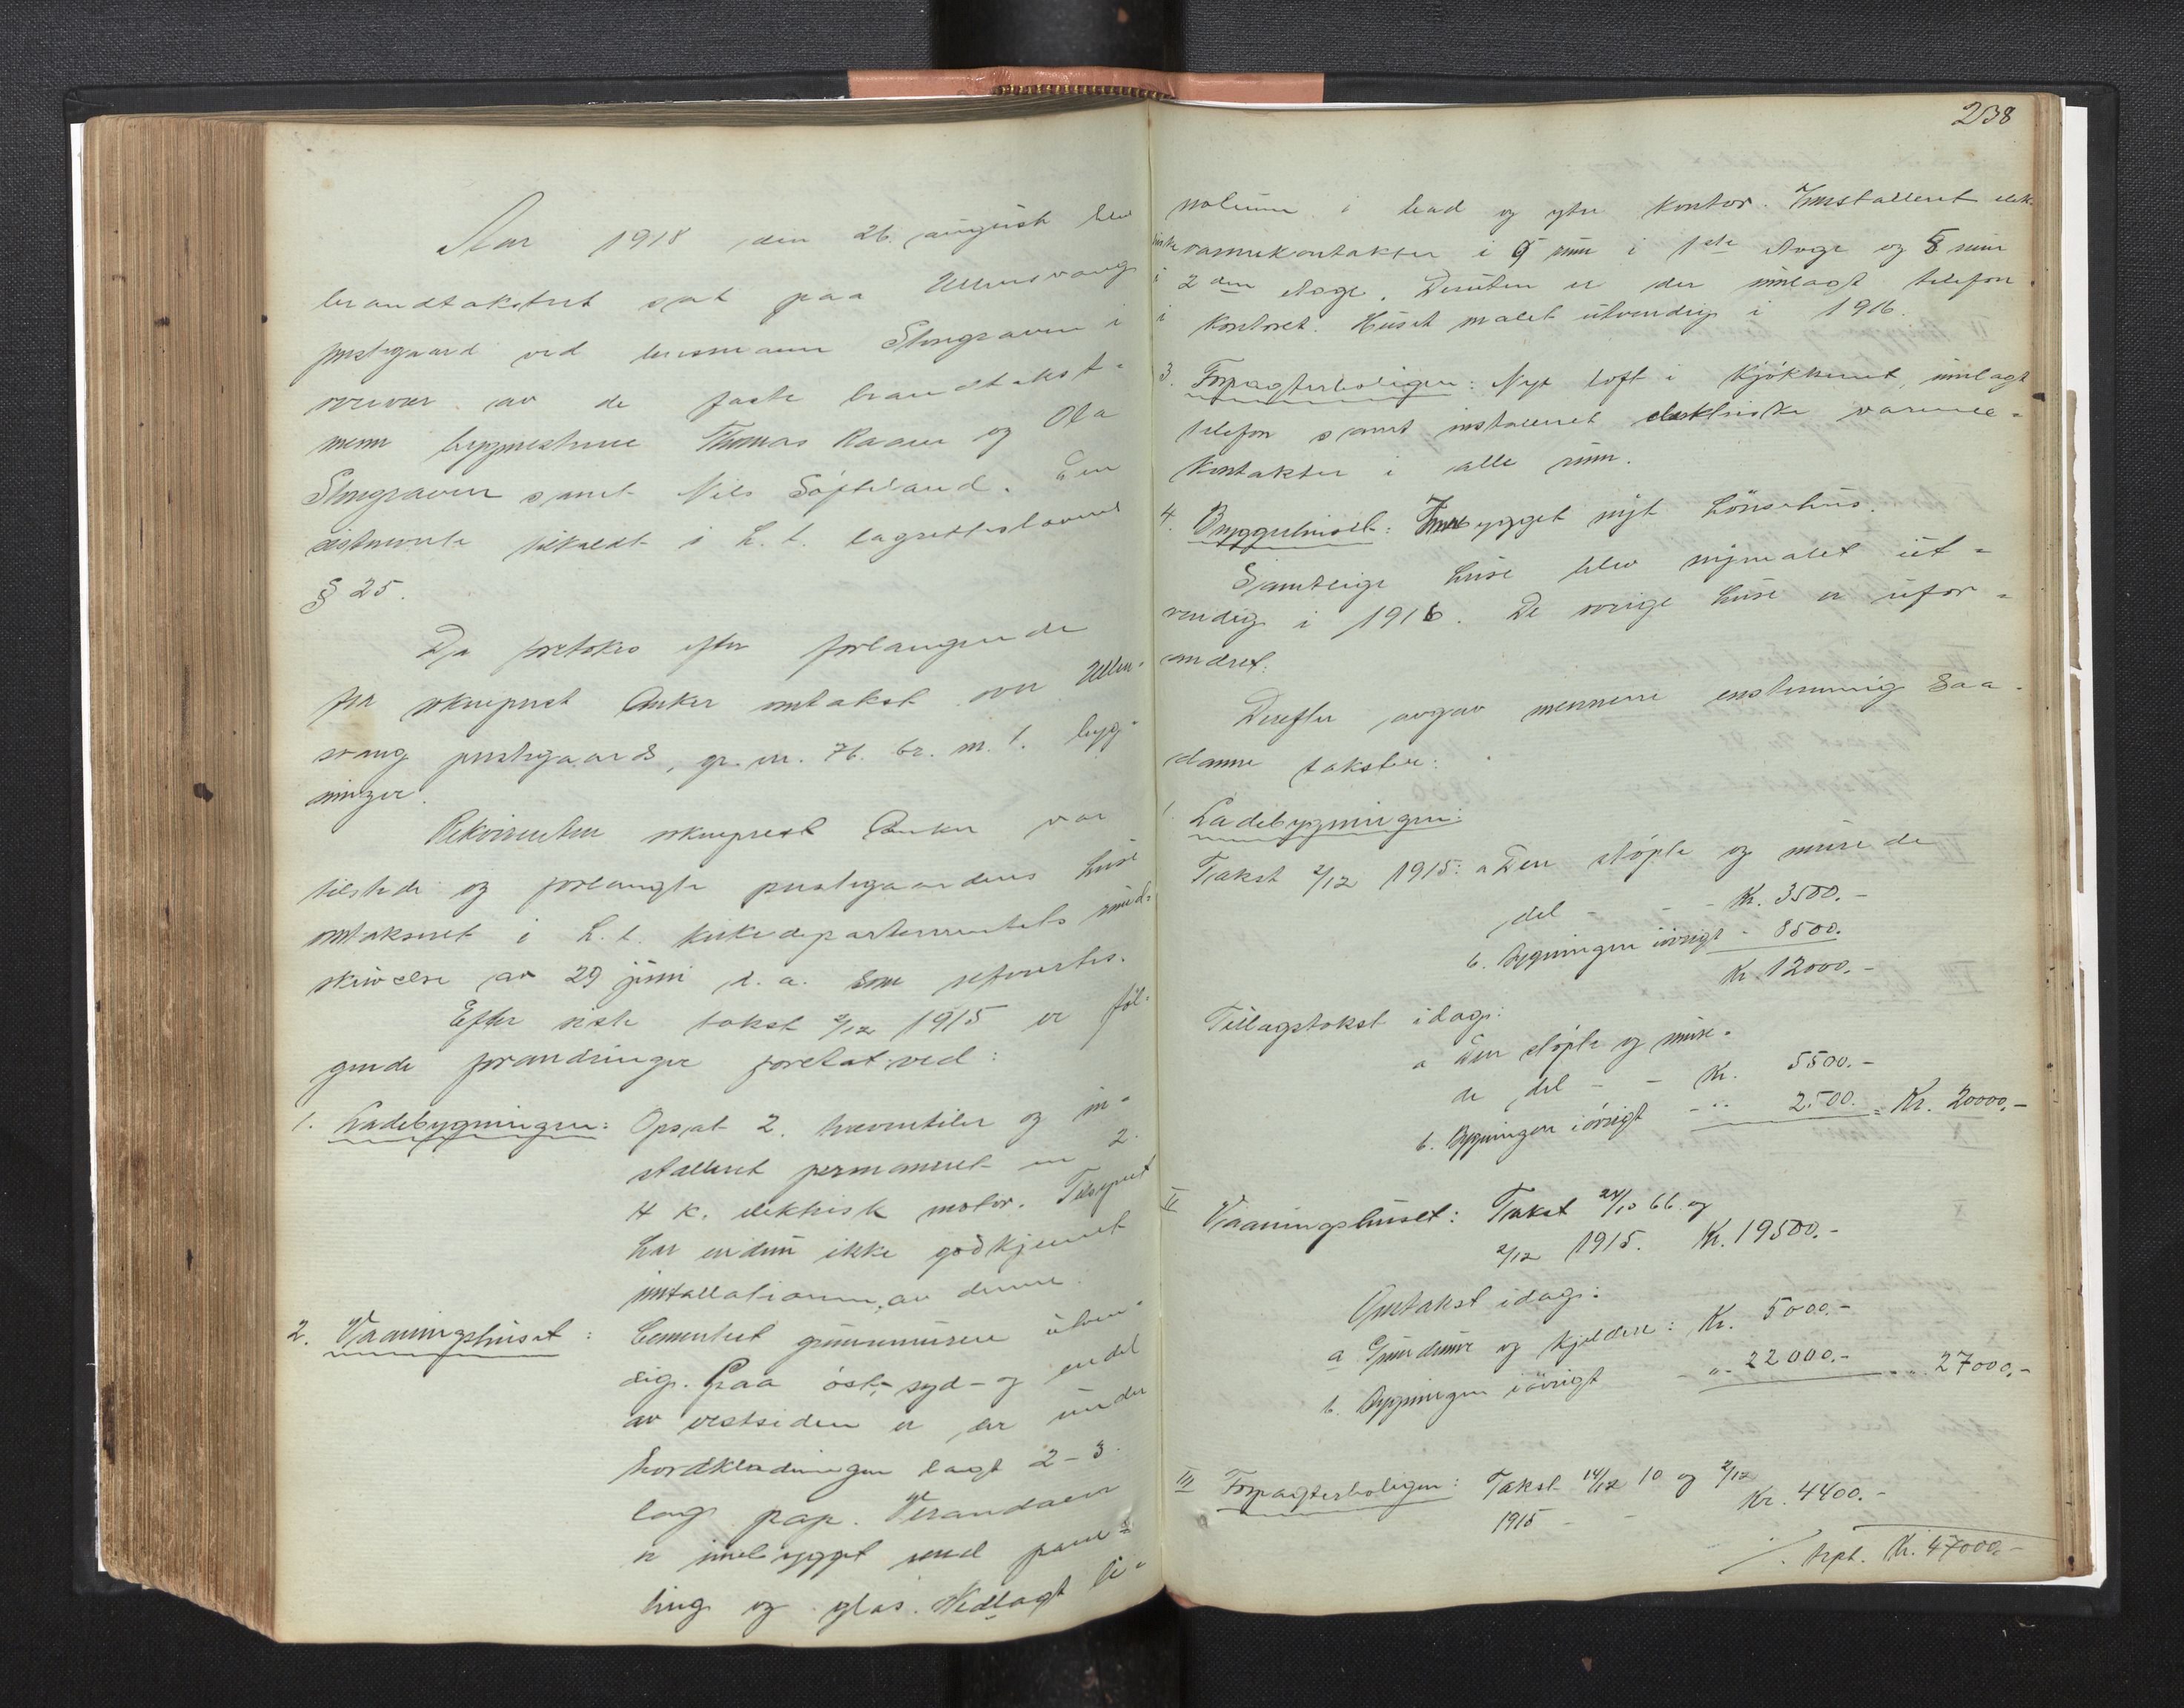 Aar 1918 den 26. august blev
brandtakstret sat paa Ullensvang
prestegaard ved lensmann Skogsaaen i
nærvær av de faste brandtakst-
menn byggmestrene Thomas Raaen og Ola
samt Nils Søfteland. Den
sistnevnte tilkaldt i h. t. lagrettesloven
§ 25.
Da foretokes efter forlangende
fra sokneprest Anker omtakst over Ullen-
svang prestegaards, gr. nr. 76. br. nr. 1. byg-
ninger.
Rekvirenten sokneprest Anker var
tilstede og forlangte prestegaardens huse
omtakseret i h. t. kirkedepartementets rund-
skrivelse av 29 juni d. a. som refereertes.
Efter siste takst 2/12 1915 er føl-
gende forandringer foretat ved:
1. Ladebygningen: Opsat 2. og in-
stalleret permanent en 2.
H K. elektrisk motor. Tilsynet
har endnu ikke godkjennet
installationen av denne.
2. Vaaningshuset: Cementeret grunnmuren utven-
dig. Paa øst-, syd- og endel
av vestsiden er der under
bordklædningen lagt 2-3
lag pap. Verandaen
er innebygget med panel-
ing og glas. Nedlagt li-
238
noleum i bad og ytre kontor. Innstalleret elek-
triske varmekontakter i 9 rum i 1ste etage og 8 rum
i 2den etage. Desuten er der innlagt telefon
i kontoret. Huset malet utvendig i 1916.
3. Forpagterboligen: Nyt loft i kjøkkenet, innlagt
telefon samt installeret elektriske varme-
kontakter i alle rum.
4. Bryggehuset: Innebygget nyt hönsehus.
Samtlige huse blev nymalet ut-
vendig i 1916. De øvrige huse er ufor-
andret.
Derefter avgav mennene enstemmig saa-
danne takster:
1. Ladebygningen:
Takst 2/12 1915: a Den støpte og murede
del - - Kr. 3500.-
b. Bygningen iøvrigt - 8500.
Kr. 12000.-
Tillagstakst idag:
a Den støpte og mure-
de del - - Kr. 5500.-
b. Bygningen iøvrigt - " 2500. = Kr. 20000.-
II Vaaningshuset: Takst 24/10 66 og
2/12 1915. Kr. 19500.-
Omtakst idag:
a Grundmur og kjeldere: Kr. 5000.-
b. Bygningen iøvrigt - " - 22000.- " - 27000,-
III Forpagterboligen: Takst 14/12 10 og 2/12
1915 - - Kr. 4400.-
./. trpt. Kr. 47000.-